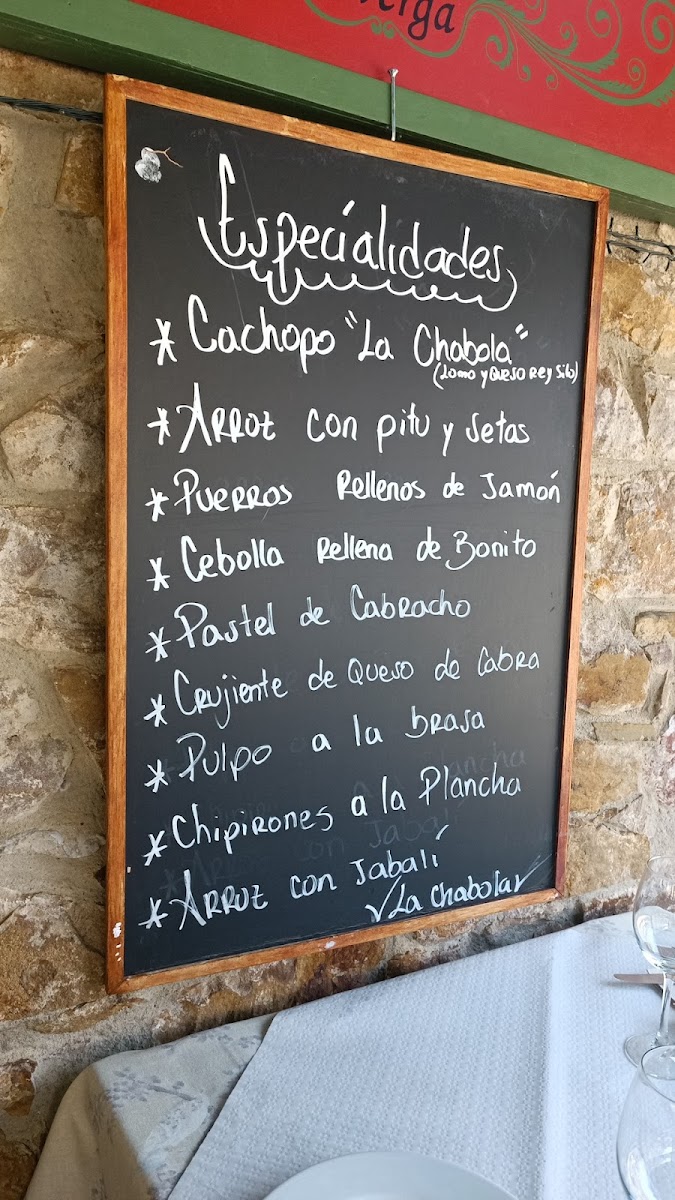 Especialidades
* Cachopo "La Chabola"
(Lomo y Queso Rey Silo)
* Arroz con pitu y setas
* Puerros Rellenos de Jamón
* Cebolla Rellena de Bonito
* Pastel de Cabracho
* Crujiente de Queso de Cabra
* Pulpo a la brasa
* Chipirones a la Plancha
* Arroz con Jabalí
La Chabola